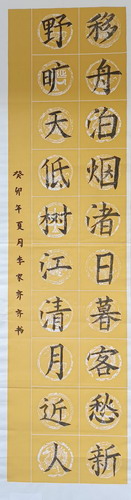 移舟泊烟渚日暮客愁新
野旷天低树江清月近人
癸卯年夏月李家齐齐书